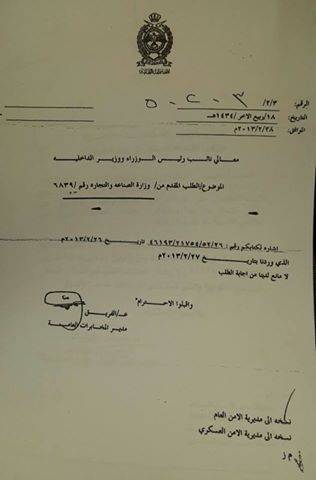 الرقم: ٢/٣/ ٣-٢-٥
التاريخ: ١٨/ربيع الاخر/١٤٣٤هـ
الموافق: ٢٠١٣/٢/٢٨م
معالي نائب رئيس الوزراء ووزير الداخليه
الموضوع/الطلب المقدم من/ وزارة الصناعه والتجاره رقم /٦٨٣٩
اشاره لكتابكم رقم: ٤٦١٩٣/٢١٧٥٤/٥٢/٢٦ تاريخ ٢٠١٣/٢/٢٦م
الذي وردنا بتاريخ ٢٠١٣/٢/٢٧م
لا مانع لدينا من اجابة الطلب
واقبلوا الاحترام،
عـ/الفريق
مدير المخابرات العامة
نسخه الى مديرية الامن العام.
نسخه الى مديرية الامن العسكري
م ز